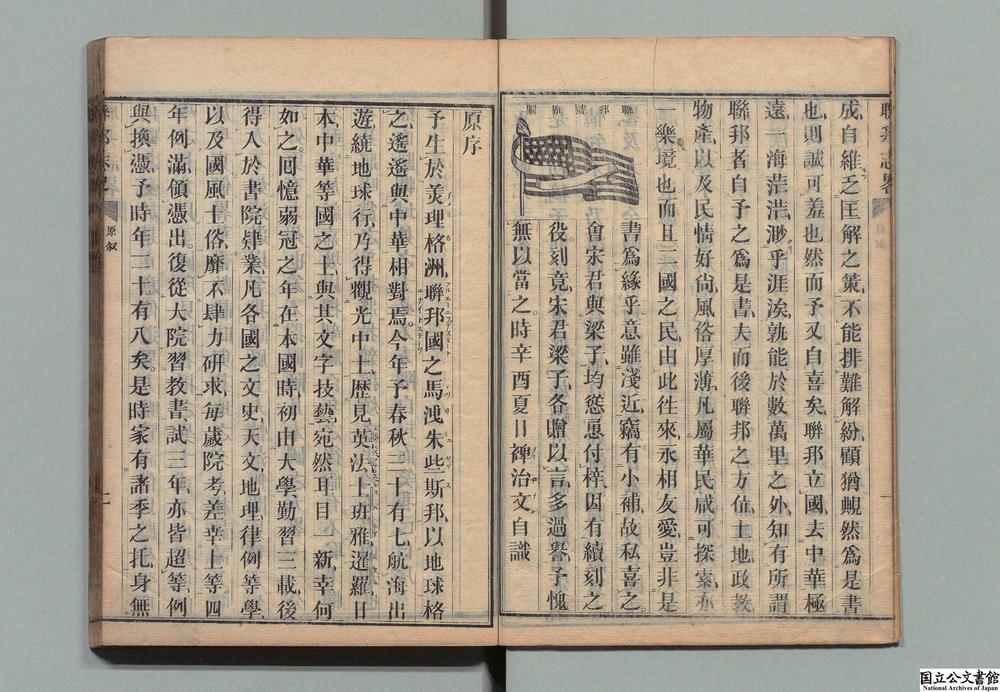 聯邦志畧
成自維乏匡解之策不能排難解紛顧猶䩄然為是書
也則誠可羞也然而予又自喜矣聯邦立國去中華極
遠一海茫茫渺乎涯涘孰能於數萬里之外知有所謂
聯邦者自予之為是書夫而後聯邦之方位土地政教
物產以及民情好尚風俗厚薄凡屬華民咸可探索亦
一樂境也而且二國之民由此往來永相友愛豈非是
聯邦號旂圖
書為緣乎意雖淺近竊有小補故私喜之
會宋君與梁子均慫恿付梓因有續刻之
役刻竟宋君梁子各贈以言多過譽予愧
無以當之時辛酉夏日裨治文自識
原序
予生於美理格洲聯邦國之馬洩朱些斯邦以地球格
之遙遙與中華相對焉今年予春秋三十有七航海出
遊繞地球行乃得觀光中土歷見英法士班雅暹羅日
本中華等國之士與其文字技藝宛然耳目一新幸何
如之回憶弱冠之年在本國時初由大學勤習三載後
得入於書院肄業凡各國之文史天文地理律例等學
以及國風土俗靡不肆力研求每歲院考差幸上等四
年例滿領憑出復從大院習教書試三年亦皆超等例
與換憑予時年二十有八矣是時家有諸季之托身無
聯邦志畧
原叙
一
National Archives of Japan
国立公文書館